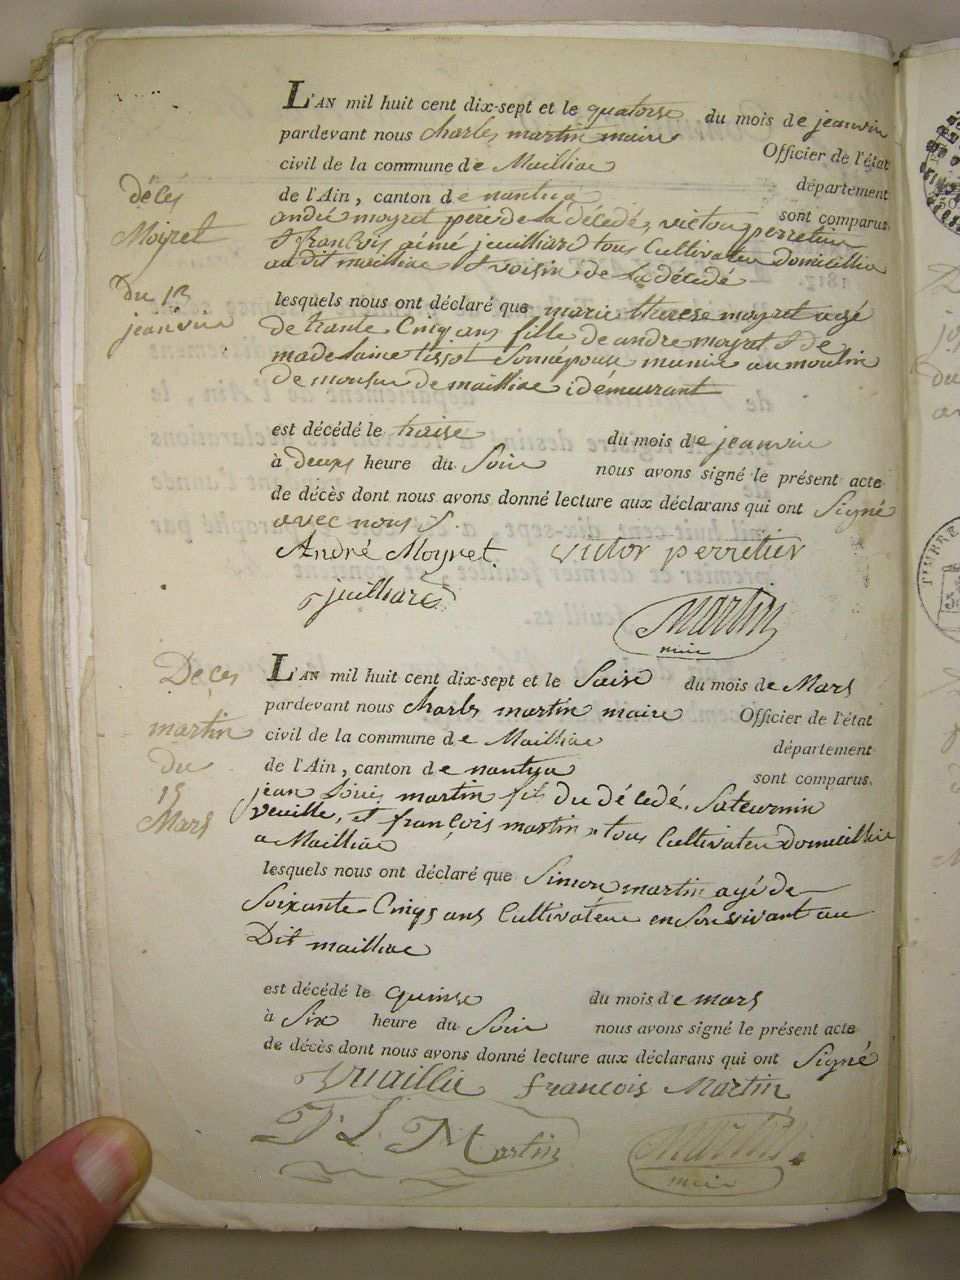 L'AN mil huit cent dix-sept et le quatorse du mois de jeanvier
pardevant nous Charles martin maire Officier de l'état
civil de la commune de Mailliac département
de l'Ain, canton de nantua sont comparus
andré moyret pere de la décedé, victor perretier
& françois aimé juilliard tous Cultivateur domicillie
au dit mailliac & voisin de la décedé
lesquels nous ont déclaré que marie therese moyret agé
de trante Cinq ans fille de andre moyret & de
madelaine tissot Son épouse au moulin
de monsieur de mailliac idemeurant
est décédé le traise du mois de jeanvier
à deux heure du Soir nous avons signé le présent acte
de décès dont nous avons donné lecture aux déclarans qui ont Signé
avec nous
André Moyret. victor perretier
juilliard
Martin
maire
décés
Moyret
Du 13
jeanvier
L'AN mil huit cent dix-sept et le Saise du mois de Mars
pardevant nous Charles martin maire Officier de l'état
civil de la commune de Mailliac département
de l'Ain, canton de nantua sont comparus
jean Louis martin fils du décedé, Saturnin
vuaillie, et françois martin, tous Cultivateur domicillie
a Mailliac
lesquels nous ont déclaré que Simon martin agé de
Soixante Cinqs ans Cultivateur en son vivant au
Dit mailliac
est décédé le quinse du mois de mars
à Six heure du Soir nous avons signé le présent acte
de décès dont nous avons donné lecture aux déclarans qui ont Signé
Vuaillie françois Martin
J. L. Martin
Martin
maire
Deces
martin
du
15
Mars
TIMBRE